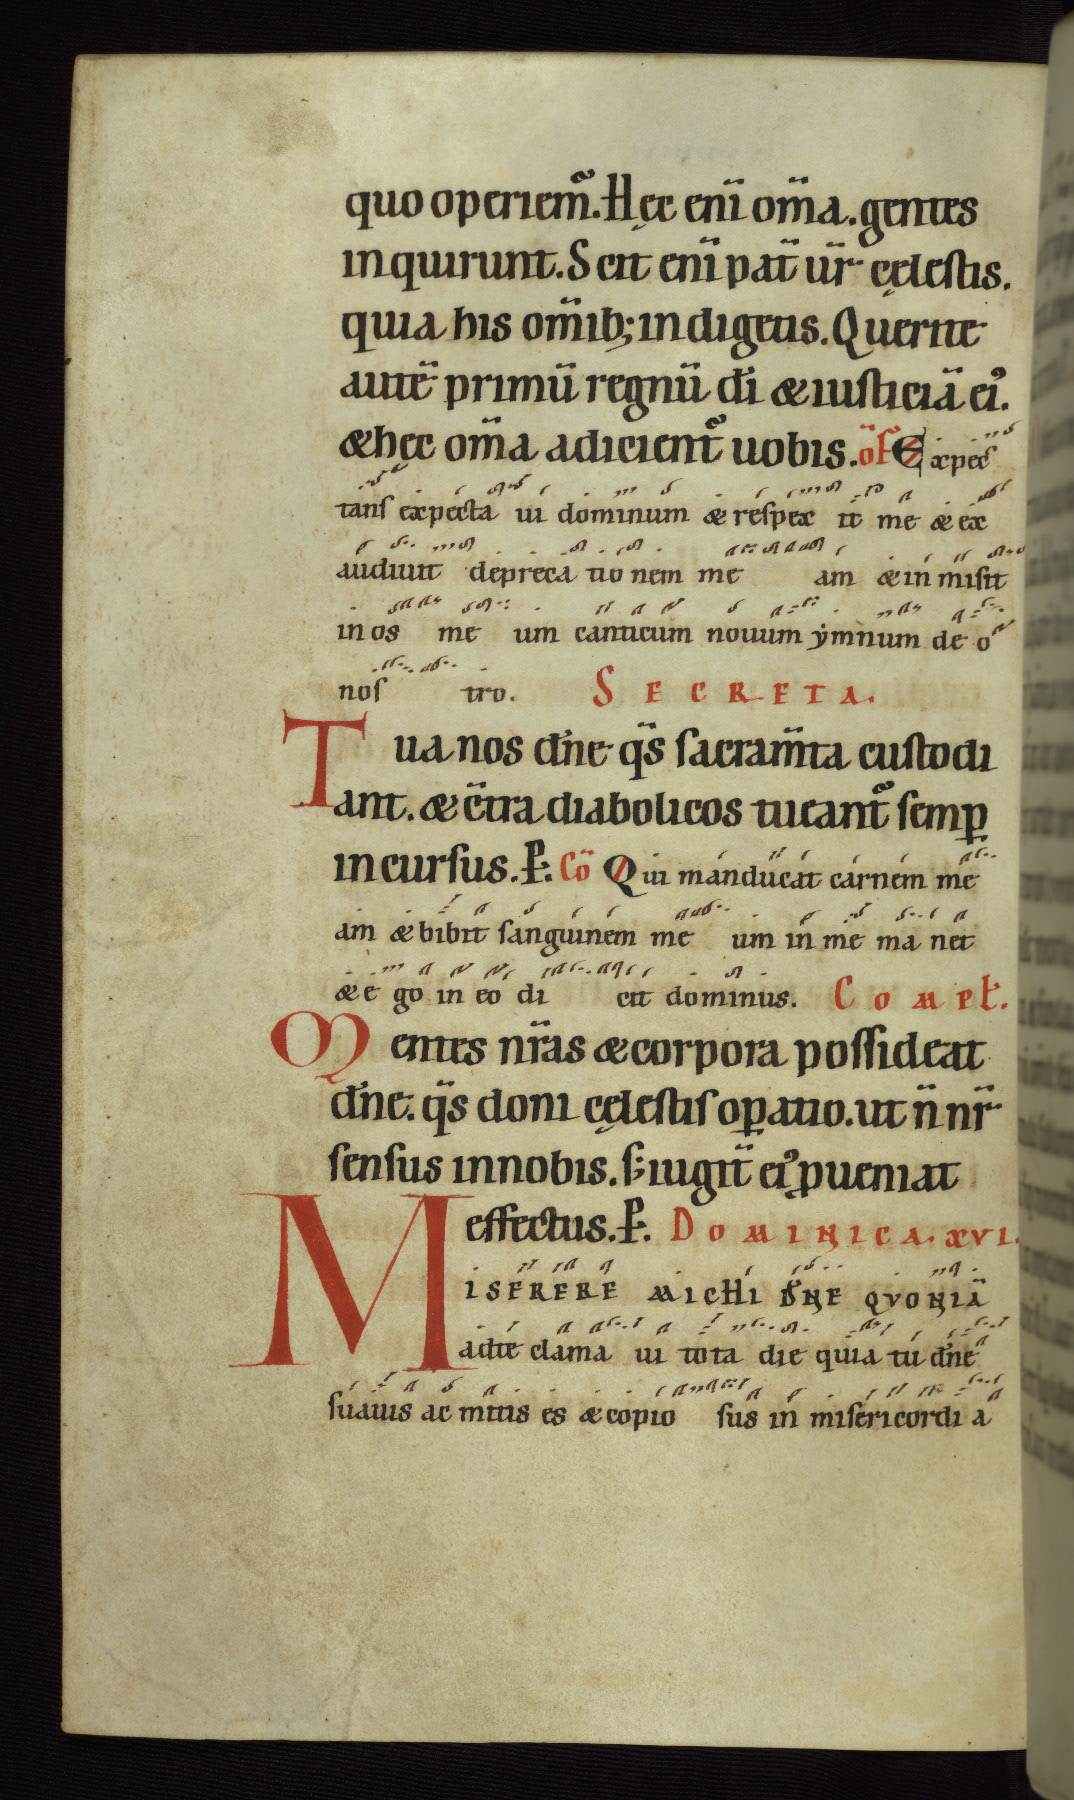 quo operiem̃. Hęc eni̅ om̅a. gentes
inquirunt. Scit eni̅ pat̅ ur̅ cęlestis.
quia his om̅ib; indigetis. Querite
aute̅ primu̅ regnu̅ di̅ & iusticia̅ ei᾿.
& hęc om̅a adicient̃ uobis. of̅ Expec
tans expecta ui dominum & respex it me & ex
audiuit depreca tio nem me am & in misit
in os me um canticum nouum ẏmnum de o
nos tro. SECRETA.
Tua nos dn̅e qs̅ sacram̅ta custodi
ant. & c̅tra diabolicos tueant̃ semp̲
incursus. P̲. Co̅ Qui manducat carnem me
am & bibit sanguinem me um in me ma net
& e go in eo di cit dominus. Complt̅.
Mentes nr̅as & corpora possideat
dn̅e. qs̅ doni cęlestis op̲atio. ut n̅ nr̅
sensus in nobis. s; iugit̅ ei᾿ p̲ueniat
effectus. P̲. DOMINICA. XVI.
MISERERE MICHI DN̅E QVONIA̅
ad te clama ui tota die quia tu dn̅e
suauis ac mitis es & copio sus in misericordi a